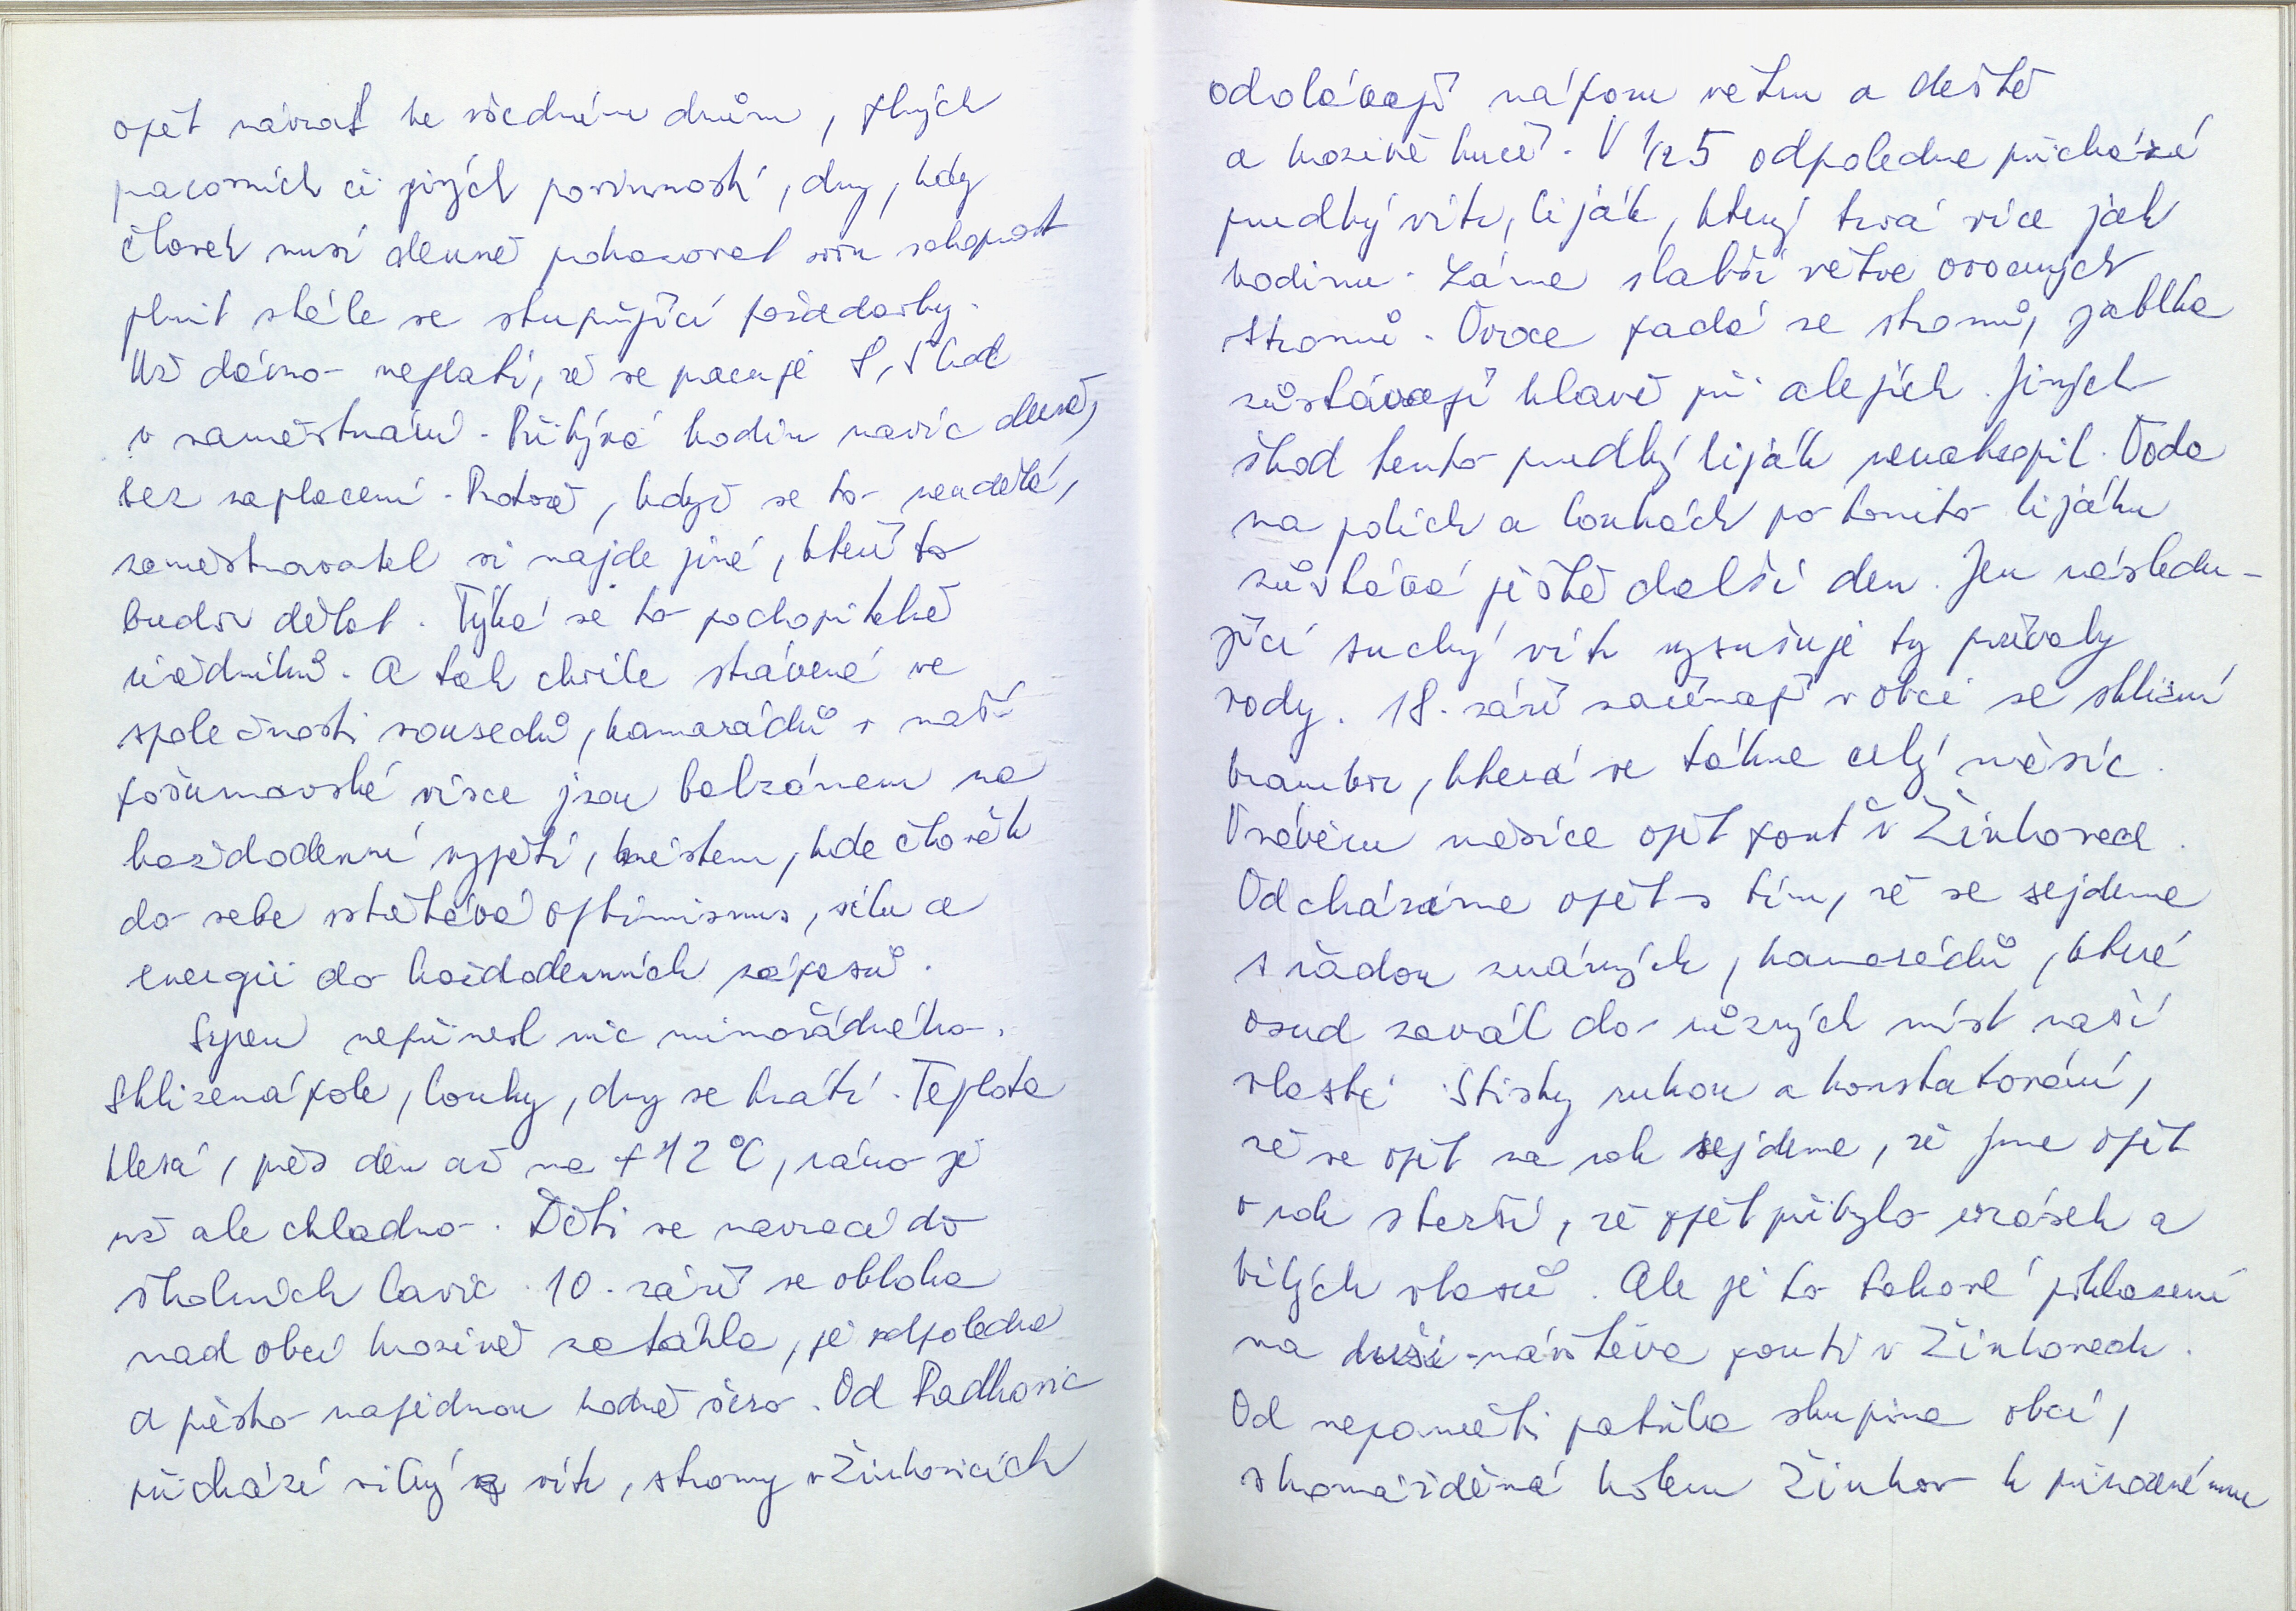 opět návrat ke všedním dnům, plných
pracovních či jiných povinností, dny, kdy
člověk musí denně prokazovat svou schopnost
plnit stále se stupňující požadavky.
Už dávno neplatí, že se pracuje 8,5 hod
v zaměstnání. Přibývá hodin navíc denně,
bez zaplacení. Protože, když se to neudělá,
zaměstnavatel si najde jiné, kteří to
budou dělat. Týká se to pochopitelně
úředníků. A tak chvíle strávené ve
společnosti sousedů, kamarádů v naší
pošumavské vísce jsou balzámem na
každodenní vypětí, místem, kde člověk
do sebe vstřebává optimismus, sílu a
energii do každodenních zápasů.
Srpen nepřinesl nic mimořádného.
Sklizená pole, louky, dny se krátí. Teplota
klesá, přes den až na +12°C, ráno je
už ale chladno. Děti se navrací do
školních lavic. 10. září se obloha
nad obcí hrozivě zatáhla, je odpoledne
a přesto najednou hodně šero. Od Radkovic
přichází silný vítr, stromy v Žinkovicích
odolávají náporu větru a deště
a hrozivě hučí. V 1/2 5 odpoledne přichází
prudký vítr, liják, který trvá více jak
hodinu. Láme slabší větve ovocných
stromů. Ovoce padá ze stromů, jablka
zůstávají hlavě při alejích. Jiných
škod tento prudký liják nenatropil. Voda
na polích a loukách po tomto lijáku
zůstává ještě další den. Jen následu-
jící suchý vítr vysušuje ty přívaly
vody. 18. září začínají v obci se sklizní
brambor, která se táhne celý měsíc.
V závěru měsíce opět pouť v Žinkovech.
Odcházíme opět s tím, že se sejdeme
s řadou známých, kamarádů, které
osud zavál do různých míst naší
vlasti. Stisky rukou a konstatování,
že se opět za rok sejdeme, že jsme opět
o rok starší, že opět přibylo vrásek a
bílých vlasů. Ale je to takové pohlazení
na duši - návštěva pouti v Žinkovech.
Od nepaměti patřila skupina obcí,
shromážděná kolem Žinkov k přirozenému